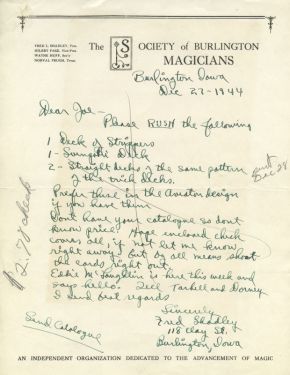 FRED L. SHADLEY, Pres.
The SOCIETY of BURLINGTON
MAGICIANS
Burlington Iowa
Dec 27-1944
Dear Joe -
Please RUSH the following
1 Deck of Strippers
1 - Svengali Deck
2 - Straight decks of the same pattern
of the trick decks.
Prefer these in the Aviator design
if you have them
Dont have your catalogue so dont
know price. Hope enclosed check
covers all, if not let me know
right away but by all means shoot
the cards right out.
Eddie McLaughlin is here this week and
says hello. Tell Tarbell and Dorney
I send best regards
Sincerely
Fred Shadley
118 Clay St.
Burlington, Iowa
Send Catalogue
sent
Dec 29
check
AN INDEPENDENT ORGANIZATION DEDICATED TO THE ADVANCEMENT OF MAGIC